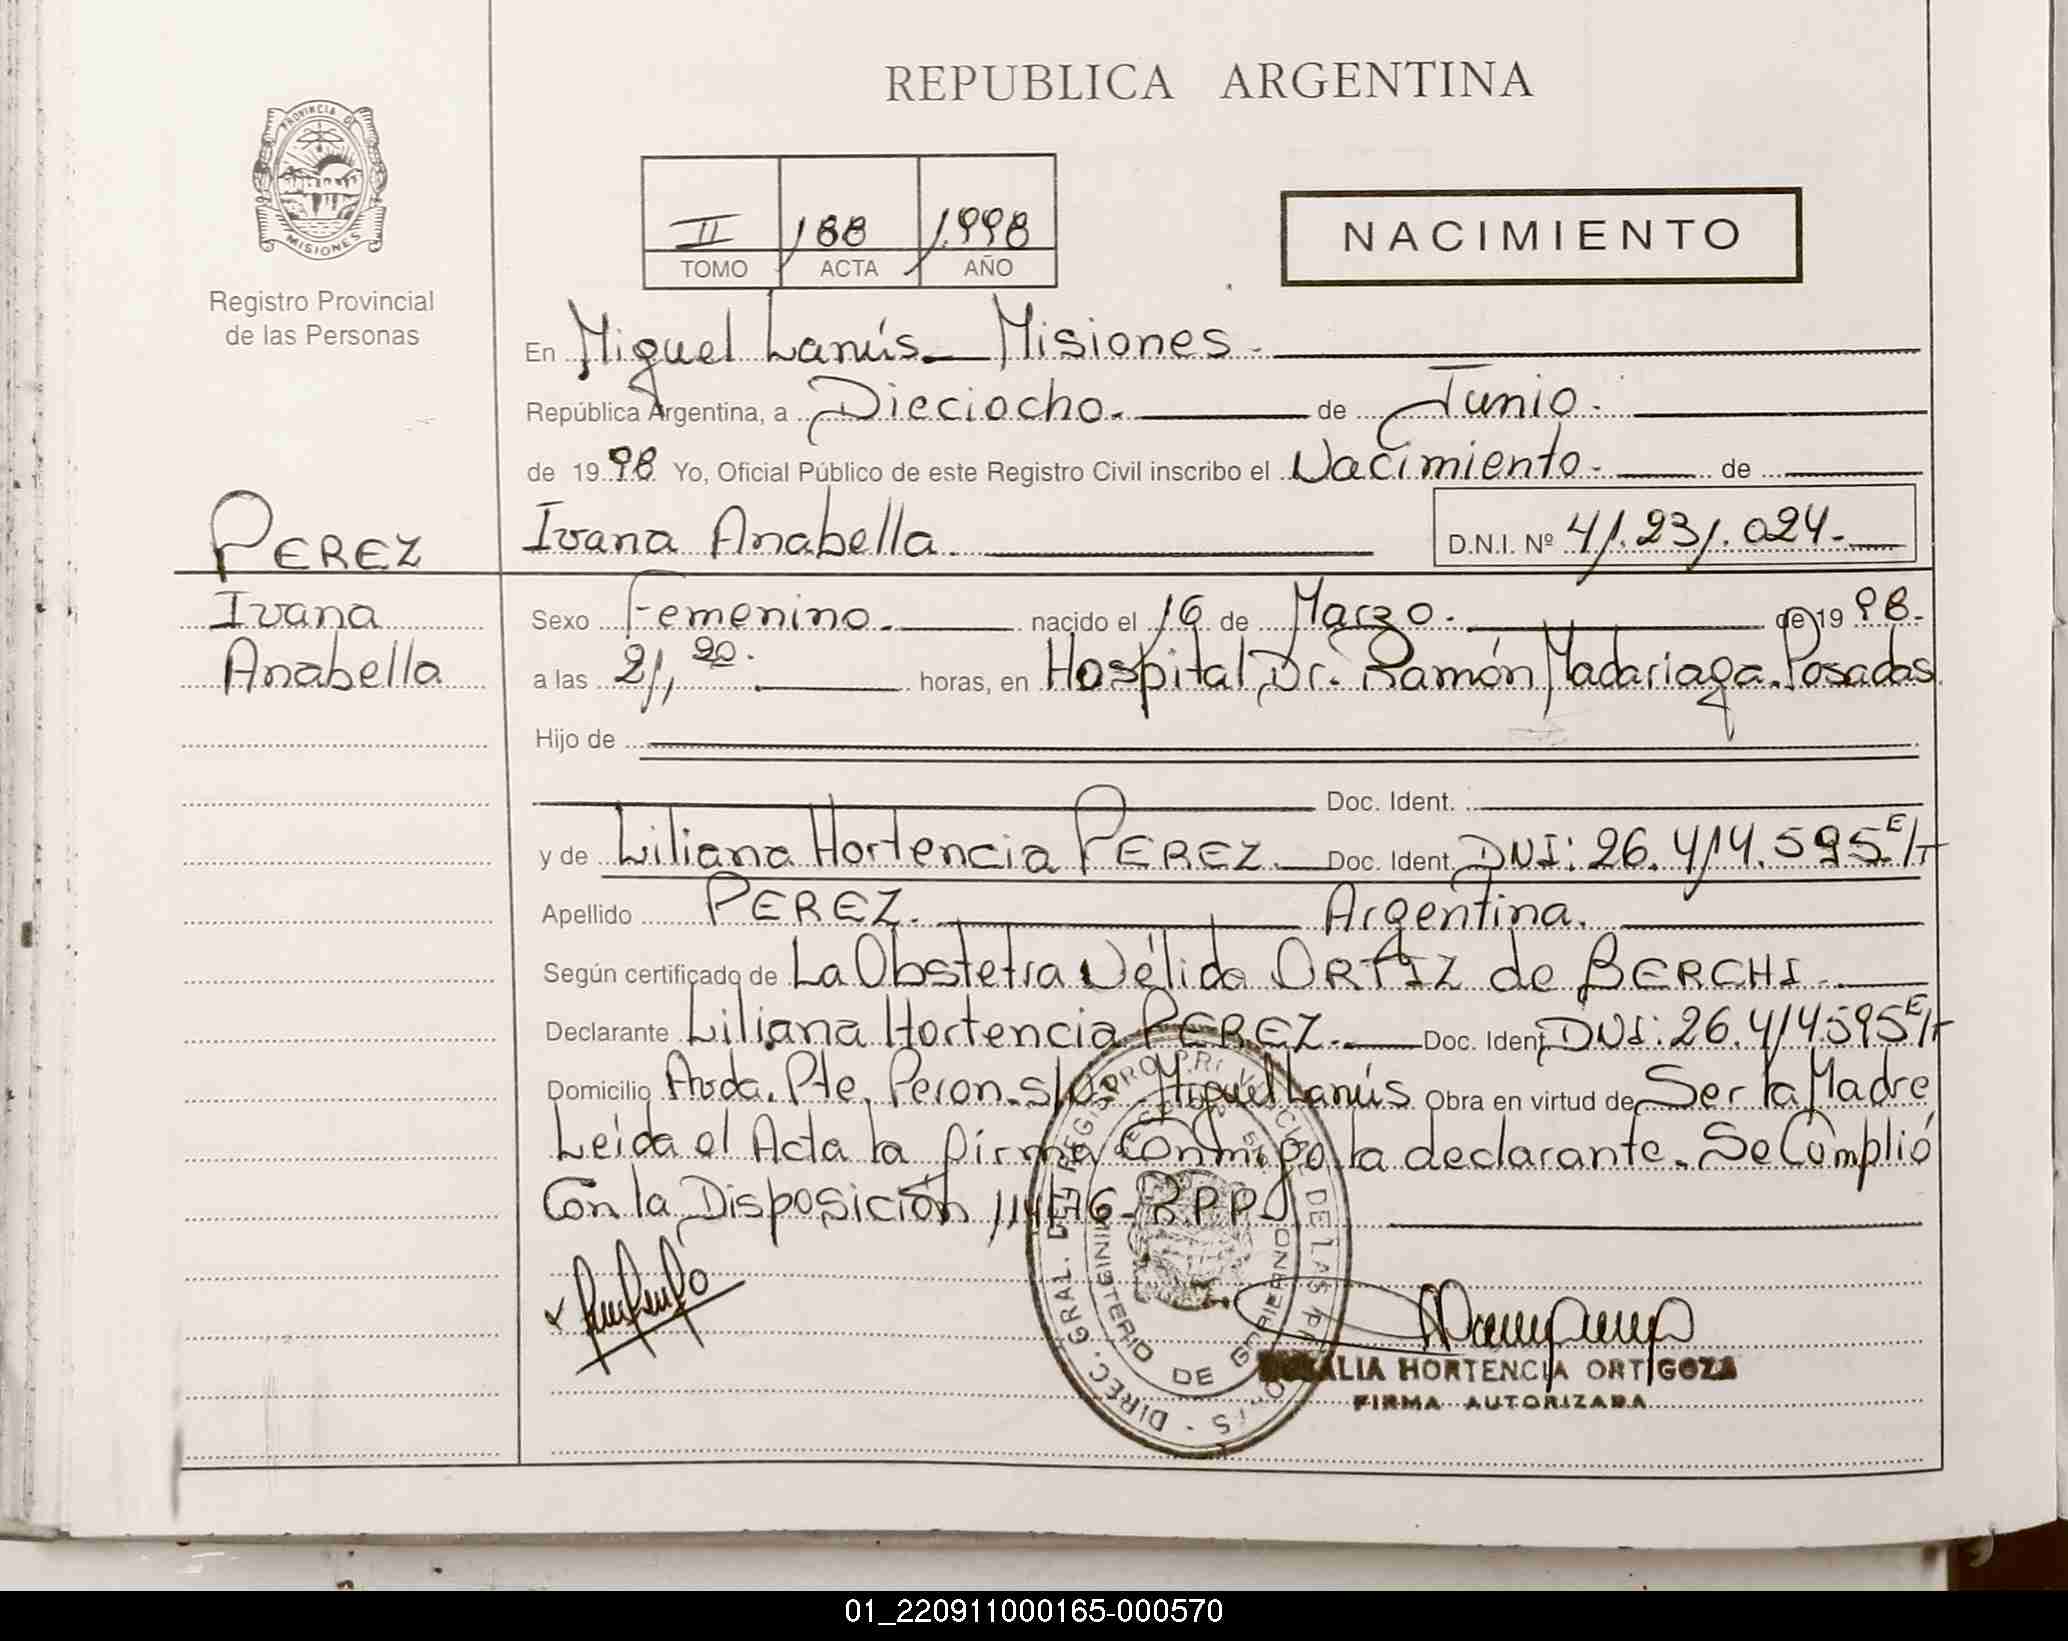 REPUBLICA ARGENTINA
PROVINCIA DE
MISIONES
Registro Provincial
de las Personas
II 188 1998
TOMO ACTA AÑO
NACIMIENTO
En Miguel Lanús - Misiones -
República Argentina, a Dieciocho. de Junio.
de 1998 Yo, Oficial Público de este Registro Civil inscribo el Nacimiento - de
PEREZ
Ivana
Anabella
Ivana Anabella. D.N.I. Nº 41.231.024-
Sexo Femenino. nacido el 16 de Marzo. de 1998.
a las 21,20. horas, en Hospital Dr. Ramón Madariaga. Posadas
Hijo de
Doc. Ident.
y de Liliana Hortencia PEREZ. Doc. Ident. DNI: 26.414.595 E/T
Apellido PEREZ. Argentina.
Según certificado de La Obstetra Nélida ORTIZ de BERCHI.
Declarante Liliana Hortencia PEREZ. Doc. Ident. DNI: 26.414.595 E/T
Domicilio Avda. Pte. Peron - s/nº Miguel Lanús Obra en virtud de Ser la Madre
Leida el Acta la firma Conmigo la declarante. Se Cumplió
Con la Disposición 114/76 - RPP.
DIREC. GRAL. DEL REG. PROVINCIAL DE LAS
MINISTERIO DE GOBIERNO
HORTENCIA ORTIGOZA
FIRMA AUTORIZADA
01_220911000165-000570